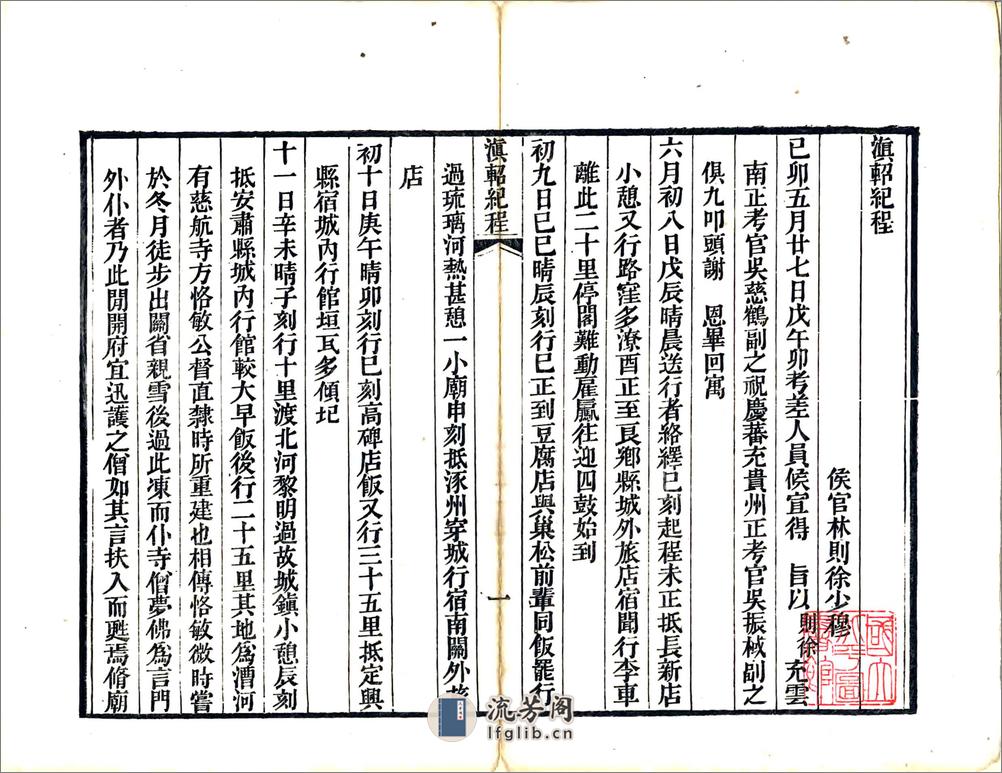 滇軺紀程
侯官林則徐少穆
己卯五月廿七日戊午卯考差人員候宣得　旨以則徐充雲
南正考官吳慈鶴副之祝慶蕃充貴州正考官吳振棫副之
俱九叩頭謝　恩畢回寓
六月初八日戊辰晴晨送行者絡繹巳刻起程未正抵長新店
小憩又行路窪多潦酉正至良鄉縣城外旅店宿聞行李車
離此二十里停閣難動雇驘往迎四鼓始到
初九日己巳晴辰刻行巳正到豆腐店與巢松前輩同飯罷行
滇軺紀程
一
過琉璃河熱甚憩一小廟申刻抵涿州穿城行宿南關外旅
店
初十日庚午晴卯刻行巳刻高碑店飯又行三十五里抵定興
縣宿城內行館垣瓦多傾圮
十一日辛未晴子刻行十里渡北河黎明過故城鎮小憩辰刻
抵安肅縣城內行館較大早飯後行二十五里其地爲漕河
有慈航寺方恪敏公督直隸時所重建也相傳恪敏微時嘗
於冬月徒步出關省親雪後過此凍而仆寺僧夢佛爲言門
外仆者乃此閒開府宜迅護之僧如其言扶入而甦焉脩廟
流芳阁
lfglib.cn